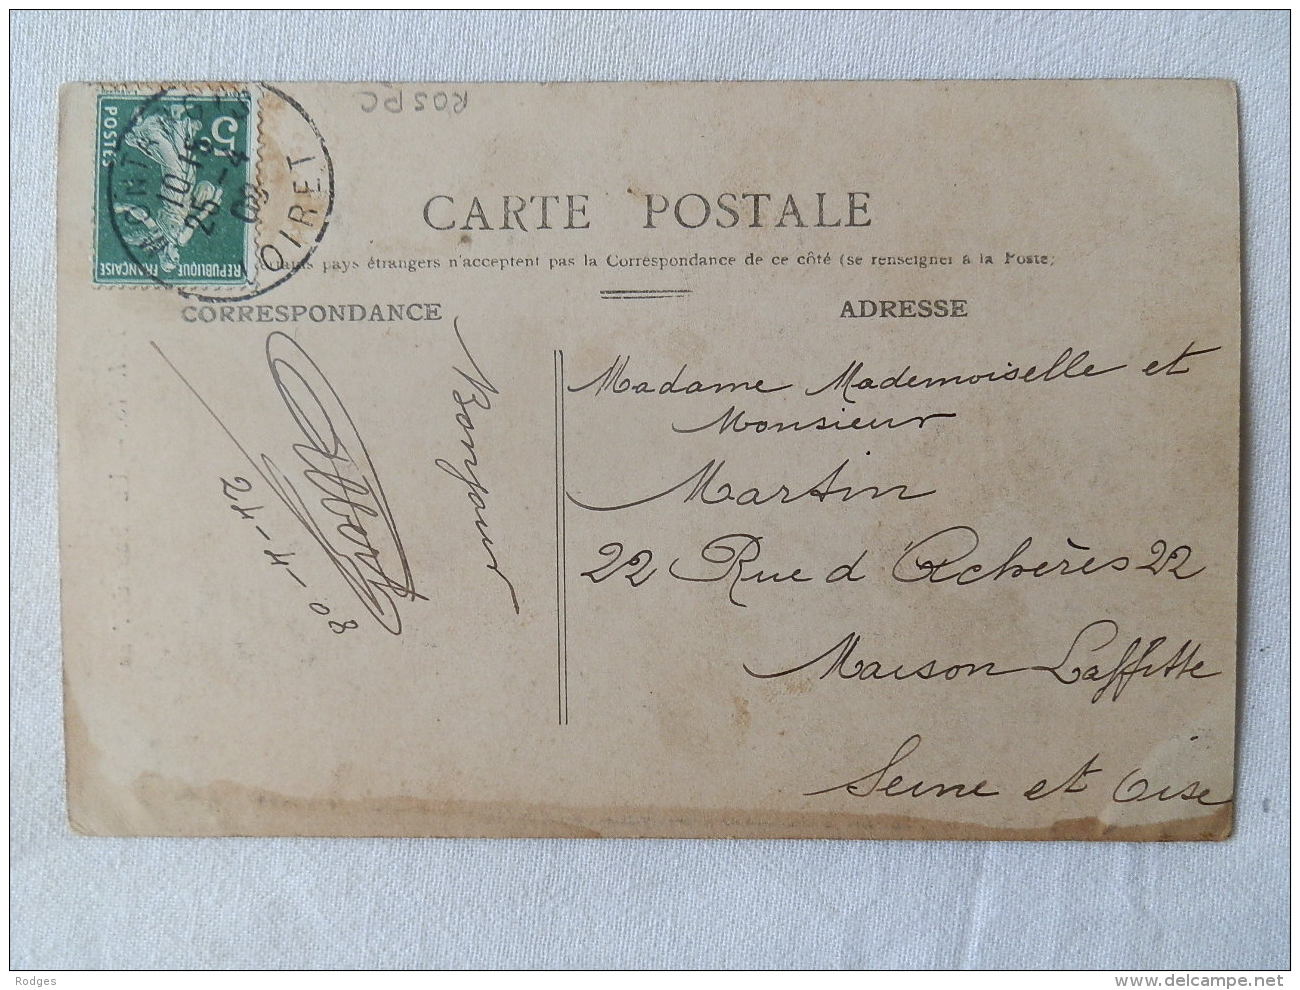 ROSPC
5c
POSTES
REPUBLIQUE FRANÇAISE
10-15
25-4
09
OIRET
CARTE POSTALE
pays étrangers n'acceptent pas la Correspondance de ce côté (se renseigner à la Poste)
CORRESPONDANCE
ADRESSE
Bonjour
Madame Mademoiselle et
Monsieur
Martin
22 Rue d'Achères 22
Maison Laffitte
Seine et Oise
Rodges
www.delcampe.net